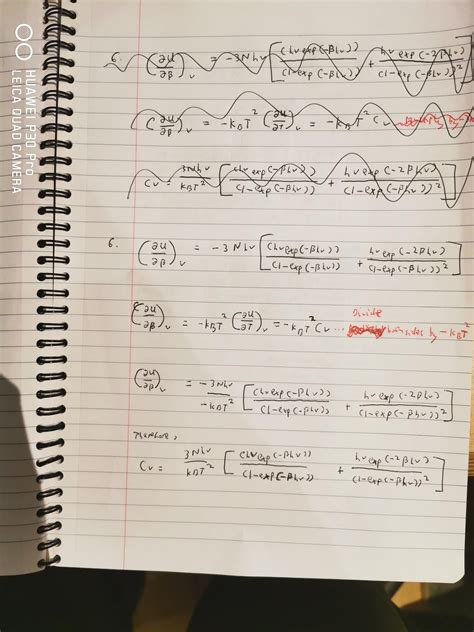 HUAWEI P30 Pro
LEICA QUAD CAMERA
6. (∂U/∂β)_v = -3Nhν [(hν exp(-βhν))/(1-exp(-βhν)) + (hν exp(-2βhν))/(1-exp(-βhν))²]
(∂U/∂β)_v = -k_BT² (∂U/∂T)_v = -k_BT² C_v
C_v = 3Nhν/k_BT² [(hν exp(-βhν))/(1-exp(-βhν)) + (hν exp(-2βhν))/(1-exp(-βhν))²]
6. (∂U/∂β)_v = -3Nhν [(hν exp(-βhν))/(1-exp(-βhν)) + (hν exp(-2βhν))/(1-exp(-βhν))²]
(∂U/∂β)_v = -k_BT² (∂U/∂T)_v = -k_BT² C_v ... Divide both sides by -k_BT²
(∂U/∂β)_v = -3Nhν/-k_BT² [(hν exp(-βhν))/(1-exp(-βhν)) + (hν exp(-2βhν))/(1-exp(-βhν))²]
Therefore,
C_v = 3Nhν/k_BT² [(hν exp(-βhν))/(1-exp(-βhν)) + (hν exp(-2βhν))/(1-exp(-βhν))²]